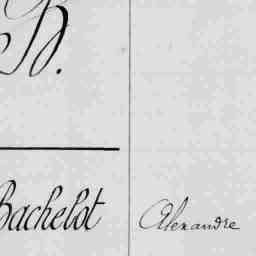 B.
Bachelot Alexandre